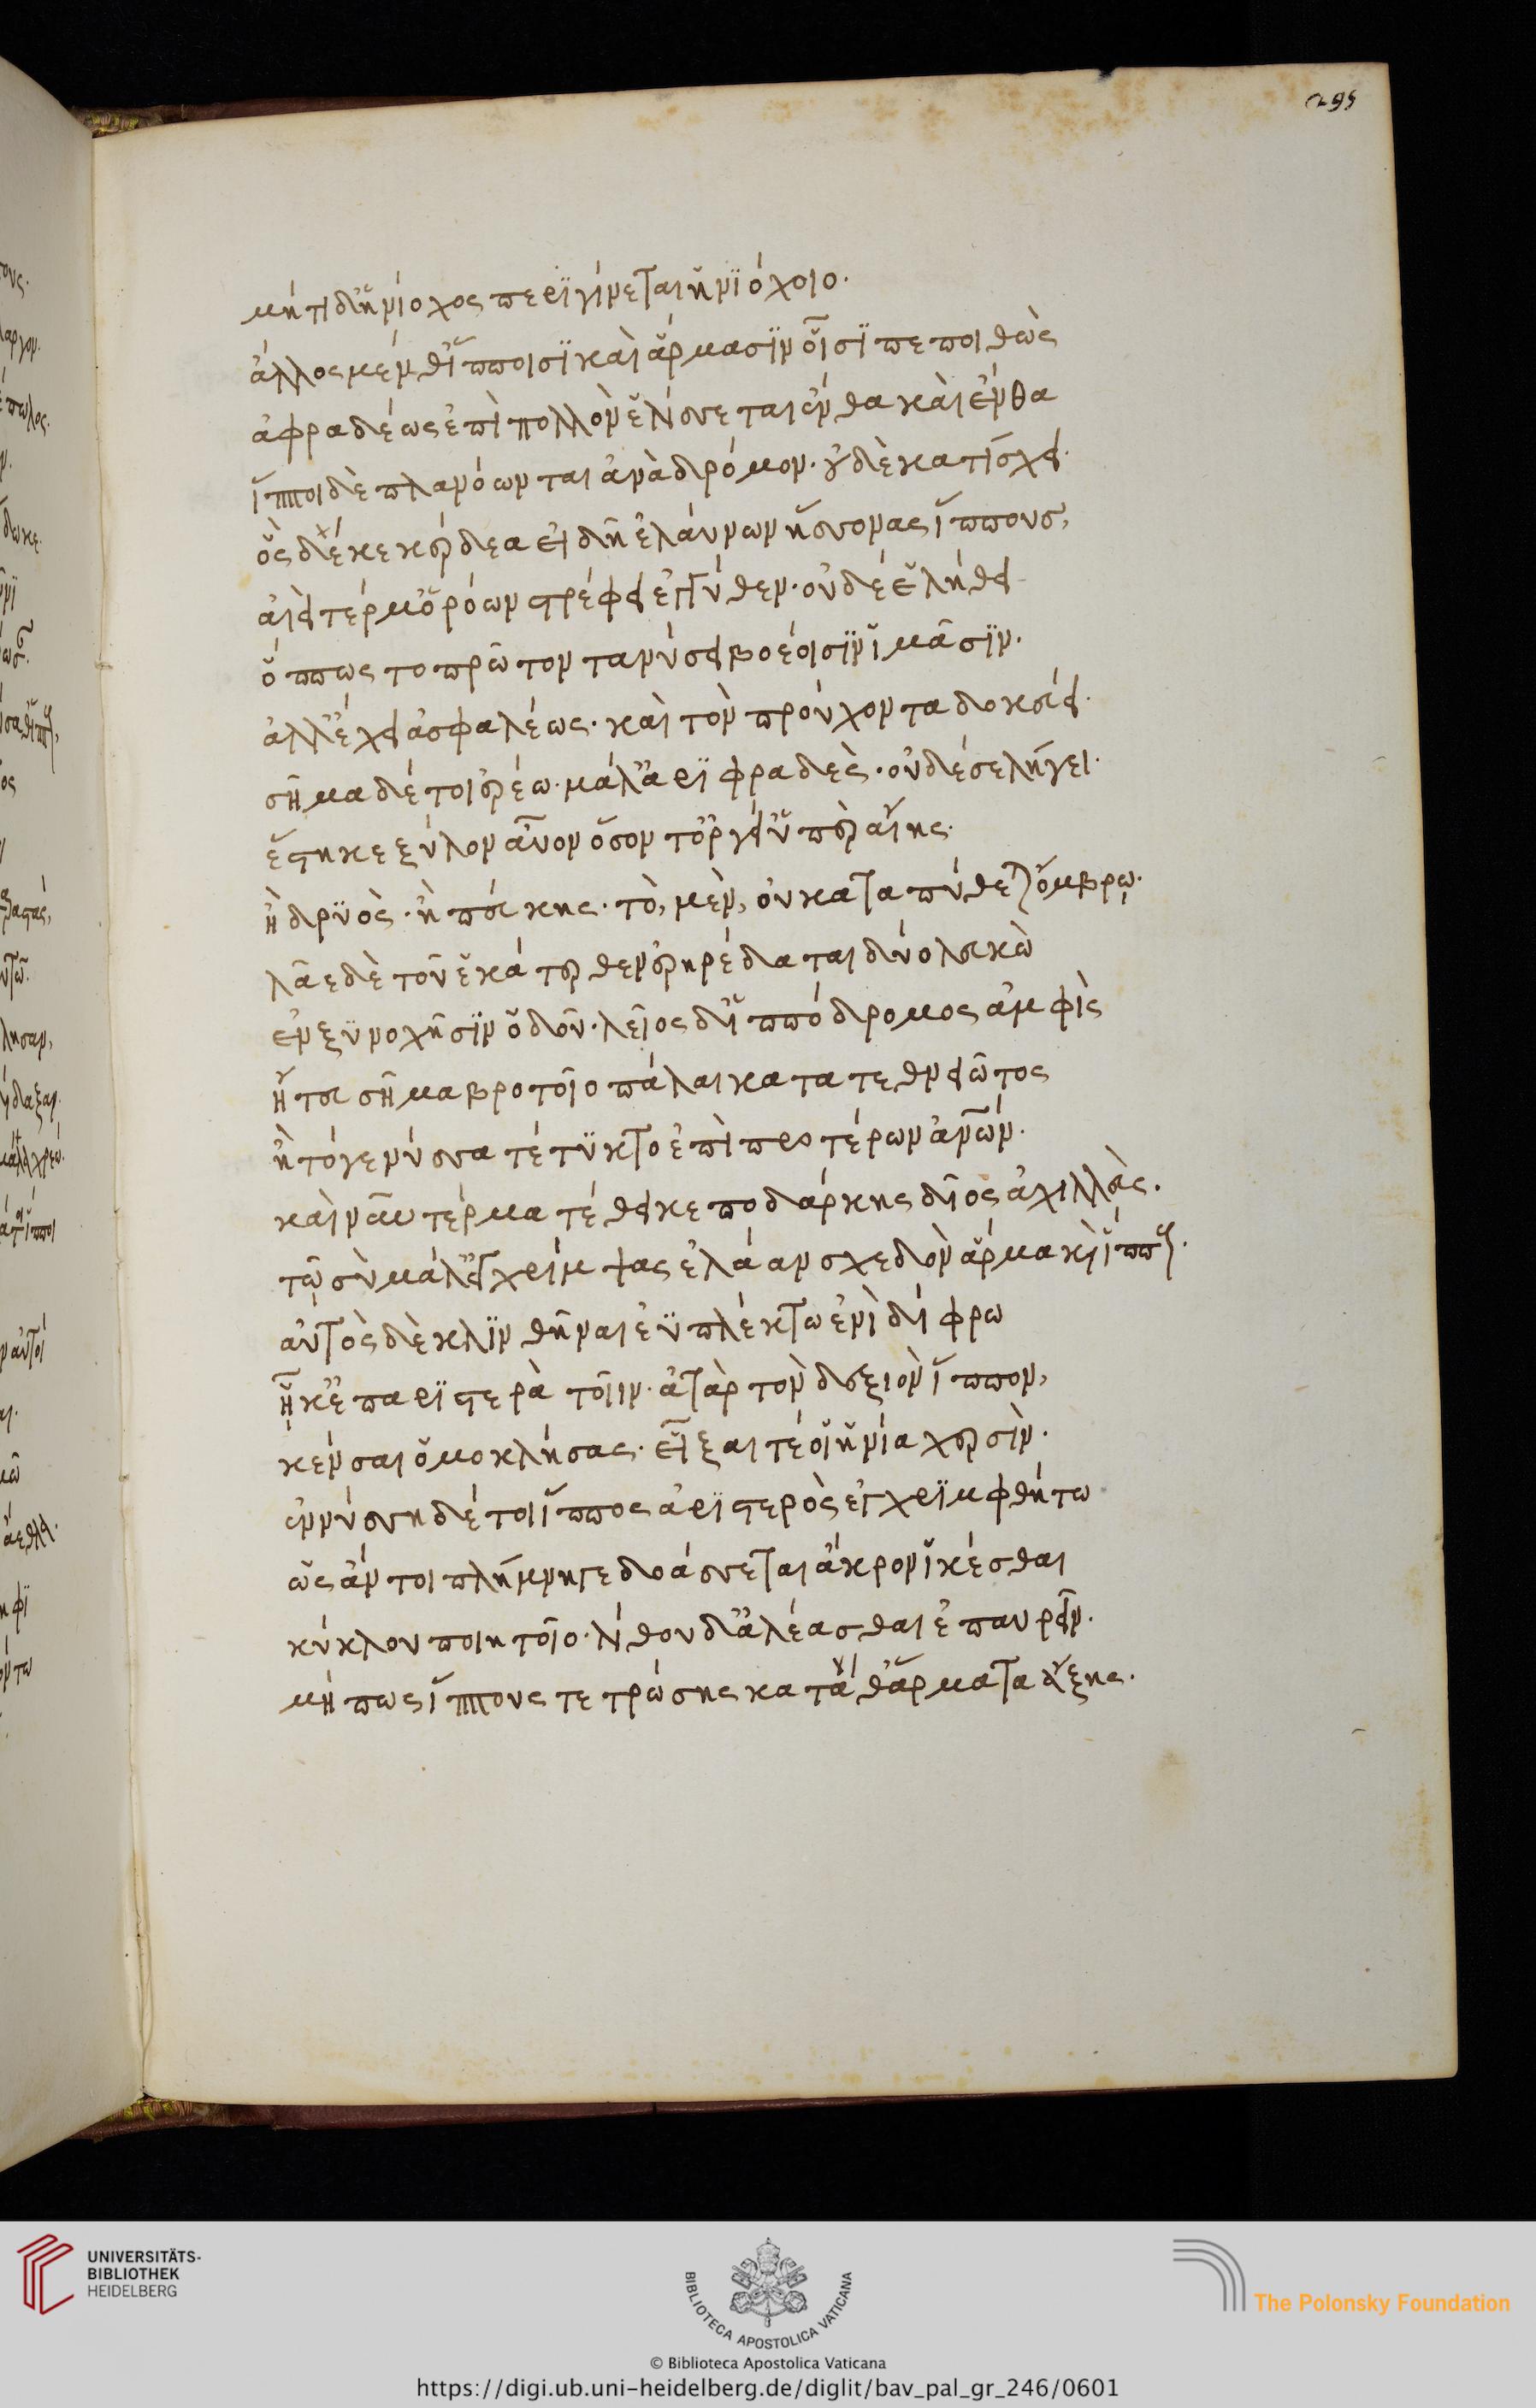 295
μήτι δ' ἡνίοχος περιγίνεται ἡνιόχοιο.
ἄλλος μέν θ' ἵπποισι καὶ ἅρμασιν οἷσι πεποιθὼς
ἀφραδέως ἐπὶ πολλὸν ἑλίσσεται ἔνθα καὶ ἔνθα
ἵπποι δὲ πλανόωνται ἀνὰ δρόμον. οὐδὲ κατίσχει.
ὃς δέ κε κέρδεα εἰδῇ ἐλαύνων ἥσσονας ἵππους,
αἰεὶ τέρμ' ὁρόων στρέφει ἐγγύθεν. οὐδέ ἑ λήθει
ὅππως το πρῶτον τανύσει βοέοισιν ἱμᾶσιν.
ἀλλ' ἔχει ἀσφαλέως. καὶ τὸν προύχοντα δοκεύει.
σῆμα δέ τοι ἐρέω. μάλ' ἀριφραδὲς. οὐδέ σε λήγει.
ἕστηκε ξύλον αὖον ὅσον τ' ὄργει' ὑπὲρ αἴης.
ἢ δρυὸς. ἢ πεύκης. τὸ, μὲν, οὐ καταπύθεται ὄμβρῳ.
λᾶε δὲ τοῦ ἑκάτερθεν ἐρηρέδαται δύο λευκὼ
ἐν ξυνοχῇσιν ὁδοῦ. λεῖος δ' ἱππόδρομος ἀμφὶς
ἤ τευ σῆμα βροτοῖο πάλαι κατατεθνειῶτος
ἢ τόγε νύσσα τέτυκτο ἐπὶ προτέρων ἀνῶν.
καὶ νῦν τέρματ' ἔθεικε ποδάρκης δῖος ἀχιλλεὺς.
τῷ σὺ μάλ' ἐγχρίμψας ἐλάαν σχεδὸν ἅρμα καὶ ἵππους.
αὐτὸς δὲ κλινθῆναι ἐϋπλέκτω ἐνὶ δίφρω
ἦκ' ἐπ' αριστερὰ τοῖιν. ἀτὰρ τὸν δεξιὸν ἵππον,
κένσαι ὁμοκλήσας. εἶξαι τέ οἱ ἡνία χερσὶν.
ἐν νύσσῃ δέ τοι ἵππος ἀριστερὸς ἐγχριμφθήτω
ὡς ἄν τοι πλήμνηγε δοάσσεται ἄκρον ἱκέσθαι
κύκλου ποιητοῖο. λίθου δ' ἀλέασθαι ἐπαυρεῖν.
μή πως ἵππους τε τρώσης κατά θ' ἅρματα ἄξης.
UNIVERSITÄTS-
BIBLIOTHEK
HEIDELBERG
BIBLIOTECA APOSTOLICA VATICANA
The Polonsky Foundation
© Biblioteca Apostolica Vaticana
https://digi.ub.uni-heidelberg.de/diglit/bav_pal_gr_246/0601